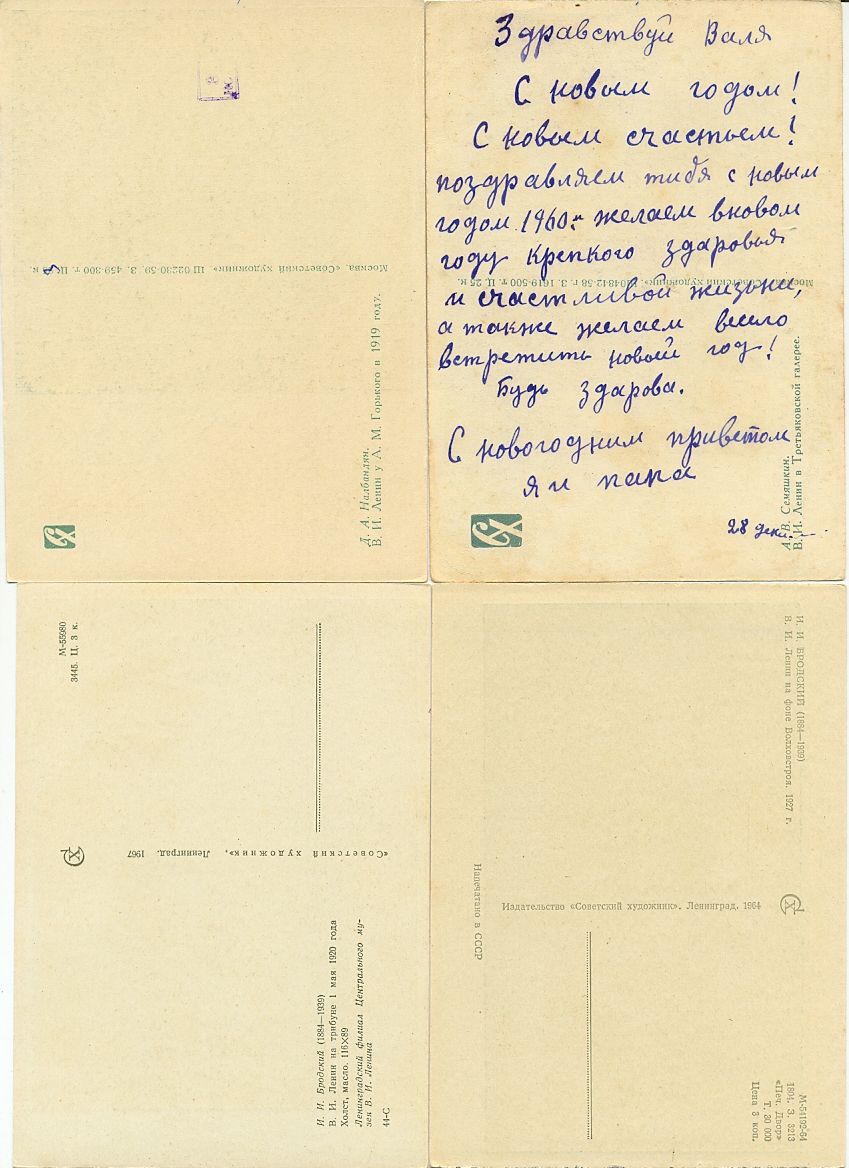 Москва. «Советский художник» Ш 02230-59. З. 459-300 т. Ц. к.
Д. А. Налбандян.
В. И. Ленин у А. М. Горького в 1919 году.
Здравствуй Валя
С новым годом!
С новым счастьем!
поздравляем тибя с новым
годом 1960г. желаем вновом
году крепкого здаровья
и счастливой жизьни,
а также желаем весело
встретить новый год!
Будь здарова.
С новогодним приветом
я и папа
28 дек.
Москва. «Советский художник». 04842-58 г. З. 1619-500 т. Ц. 25 к.
А. В. Семяшкин.
В. И. Ленин в Третьяковской галерее.
М-55980
3445. Ц. 3 к.
«Советский художник», Ленинград. 1967
И. И. Бродский (1884—1939)
В. И. Ленин на трибуне 1 мая 1920 года
Холст, масло. 116×89
Ленинградский филиал Центрального му-
зея В. И. Ленина
44-С
И. И. БРОДСКИЙ (1884—1939)
В. И. Ленин на фоне Волховстроя. 1927 г.
Напечатано в СССР
Издательство «Советский художник». Ленинград, 1964
М-54192-64
1804. З. 3213
«Печ. Двор»
Т. 30 000
Цена 3 коп.